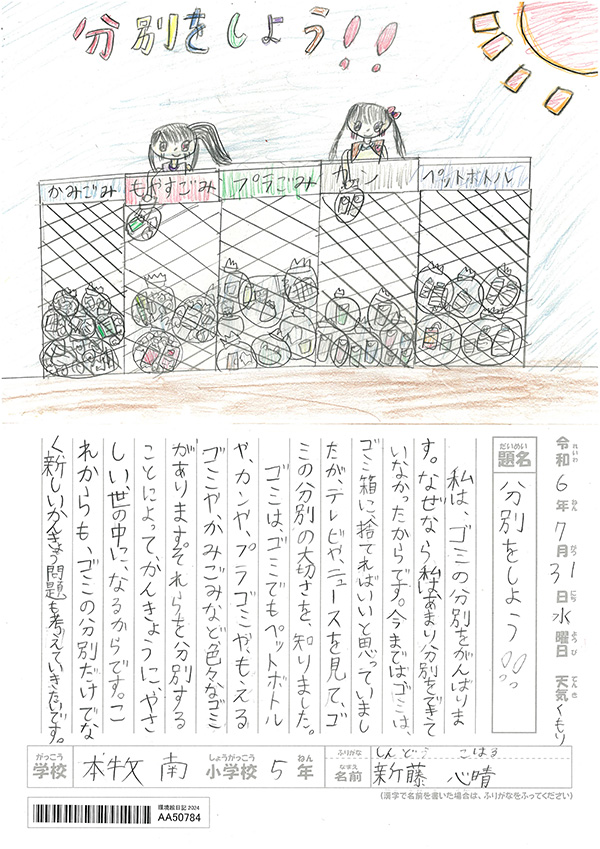 分別をしよう!!
かみごみ
もやすごみ
プラごみ
カン
ペットボトル
令和6年7月31日水曜日 天気くもり
れいわ ねん がつ にち ようび てんき
だいめい
題名
分別をしよう!!
私は、ゴミの分別をがんばりま
す。なぜなら私はあまり分別をできて
いなかったからです。今まではゴミは、
ゴミ箱に、捨てればいいと思っていまし
たが、テレビや、ニュースを見て、ゴ
ミの分別の大切さを、知りました。
ゴミは、ゴミでもペットボトル
や、カンや、プラゴミや、もえる
ゴミや、かみごみなど色々なゴミ
があります。それらを分別する
ことによって、かんきょうに、やさ
しい、世の中に、なるからです。こ
れからも、ゴミの分別だけでな
く新しいかんきょう問題も考えていきたいです。
がっこう しょうがっこう ねん
学校 本牧南 小学校 5年
ふりがな しんどう こはる
なまえ
名前 新藤 心晴
(漢字で名前を書いた場合は、ふりがなをふってください)
環境絵日記2024
AA50784